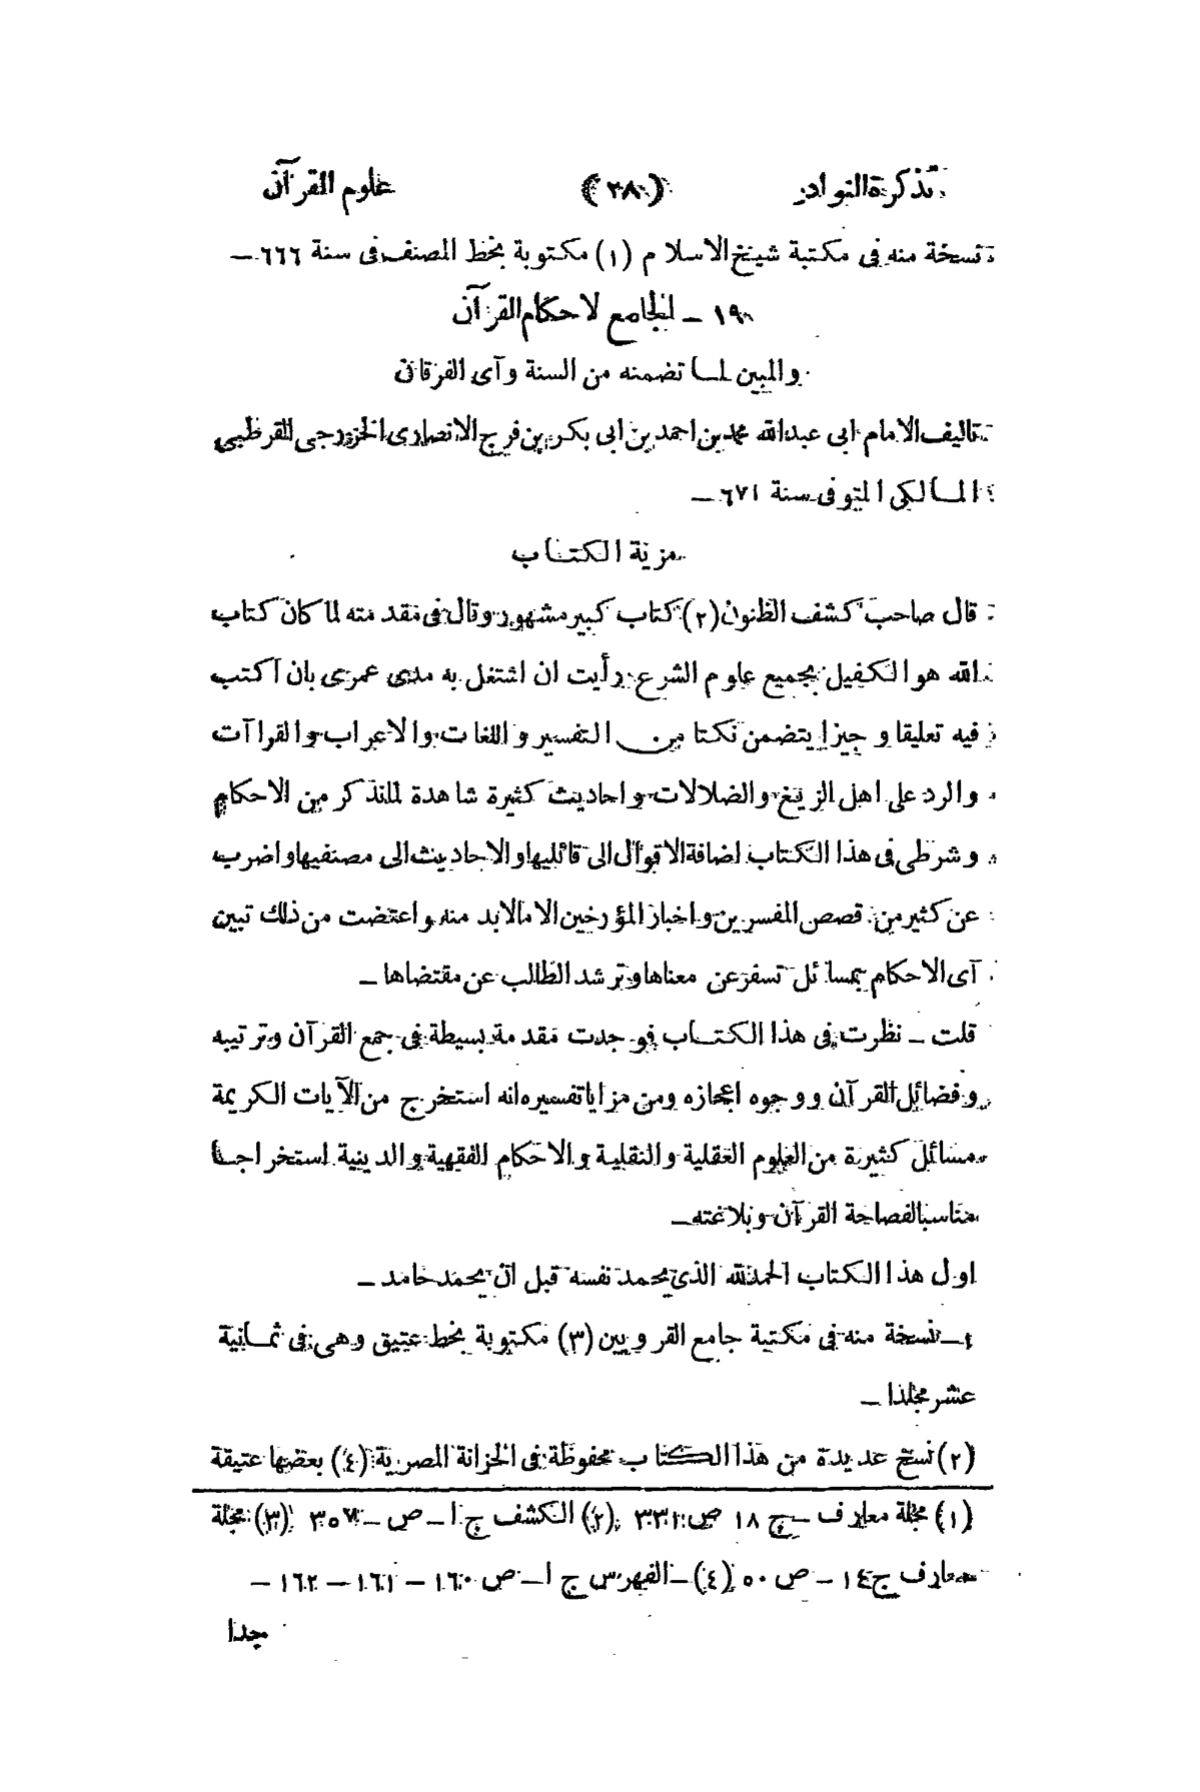 تذكرة النوادر (٢٨) علوم القرآن
نسخة منه فى مكتبة شيخ الاسلام (١) مكتوبة بخط المصنف فى سنة ٦٦٦ –
١٩ – الجامع لاحكام القرآن
والمبين لما تضمنه من السنة وآى الفرقان
تاليف الامام ابى عبدالله محمد بن احمد بن ابى بكر بن فرج الانصارى الخزرجى القرطبى
المالكى المتوفى سنة ٦٧١ –
مزية الكتاب
قال صاحب كشف الظنون (٢) كتاب كبير مشهور وقال فى مقدمته لما كان كتاب
الله هو الكفيل بجميع علوم الشرع رأيت ان اشتغل به مدى عمرى بان اكتب
فيه تعليقا و جيزا يتضمن نكتا من التفسير و اللغات والاعراب والقراآت
والرد على اهل الزيغ والضلالات واحاديث كثيرة شاهدة لما نذكر من الاحكام
وشرطى فى هذا الكتاب اضافة الاقوال الى قائليها والاحاديث الى مصنفيها واضرب
عن كثير من قصص المفسرين واخبار المؤرخين الا مالابد منه واعتضت من ذلك تبين
آى الاحكام بمسائل تسفر عن معناها وترشد الطالب عن مقتضاها –
قلت – نظرت فى هذا الكتاب فوجدت مقدمة بسيطة فى جمع القرآن وترتيبه
وفضائل القرآن ووجوه اعجازه ومن مزايا تفسيره انه استخرج من الآيات الكريمة
مسائل كثيرة من العلوم العقلية والنقلية والاحكام الفقهية والدينية استخراجا
مناسبا لفصاحة القرآن وبلاغته –
اول هذا الكتاب الحمدلله الذى يحمد نفسه قبل ان يحمد حامد –
١ – نسخة منه فى مكتبة جامع القرويين (٣) مكتوبة بخط عتيق وهى فى ثمانية
عشر مجلدا –
(٢) نسخ عديدة من هذا الكتاب محفوظة فى الخزانة المصرية (٤) بعضها عتيقة
(١) مجلة معارف – ج ١٨ ص ٣٣١ (٢) الكشف ج ١ – ص – ٣٥٧ (٣) مجلة
معارف ج ١٤ – ص ٥٠ (٤) – الفهرس ج ١ – ص ١٦٠ – ١٦١ – ١٦٢ –
جدا